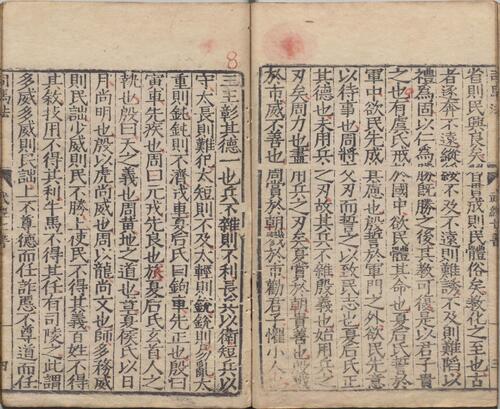 省則民興良矣習貫成則民體俗矣教化之至也古
者逐奔不遠縱綏不及不遠則難誘不及則難陷以
禮爲固以仁爲勝旣勝之後其教可復是以君子貴
之也有虞氏戒於國中欲民體其命也夏后氏誓於
軍中欲民先成其慮也殷誓於軍門之外欲民先意
以待事也周將交刃而誓之以致民志也夏后氏正
其德也未用兵之刃故其兵不雜殷義也始用兵之
刃矣周力也盡用兵之刃矣夏賞於朝貴善也殷戮
於市威不善也周賞於朝戮於市勸君子懼小人
8
三王彰其德一也兵不雜則不利長兵以衛短兵以
守太長則難犯太短則不及太輕則銳銳則易亂太
重則鈍鈍則不濟戎車夏后氏曰鉤車先正也殷曰
寅車先疾也周曰元戎先良也旂夏后氏玄首人之
執也殷曰天之義也周黃地之道也章夏后氏以日
月尚明也殷以虎尚威也周以龍尚文也師多務威
則民詘少威則民不勝上使民不得其義百姓不得
其敘技用不得其利牛馬不得其任有司陵之此謂
多威多威則民詘上不尊德而任詐慝不尊道而任
司馬法